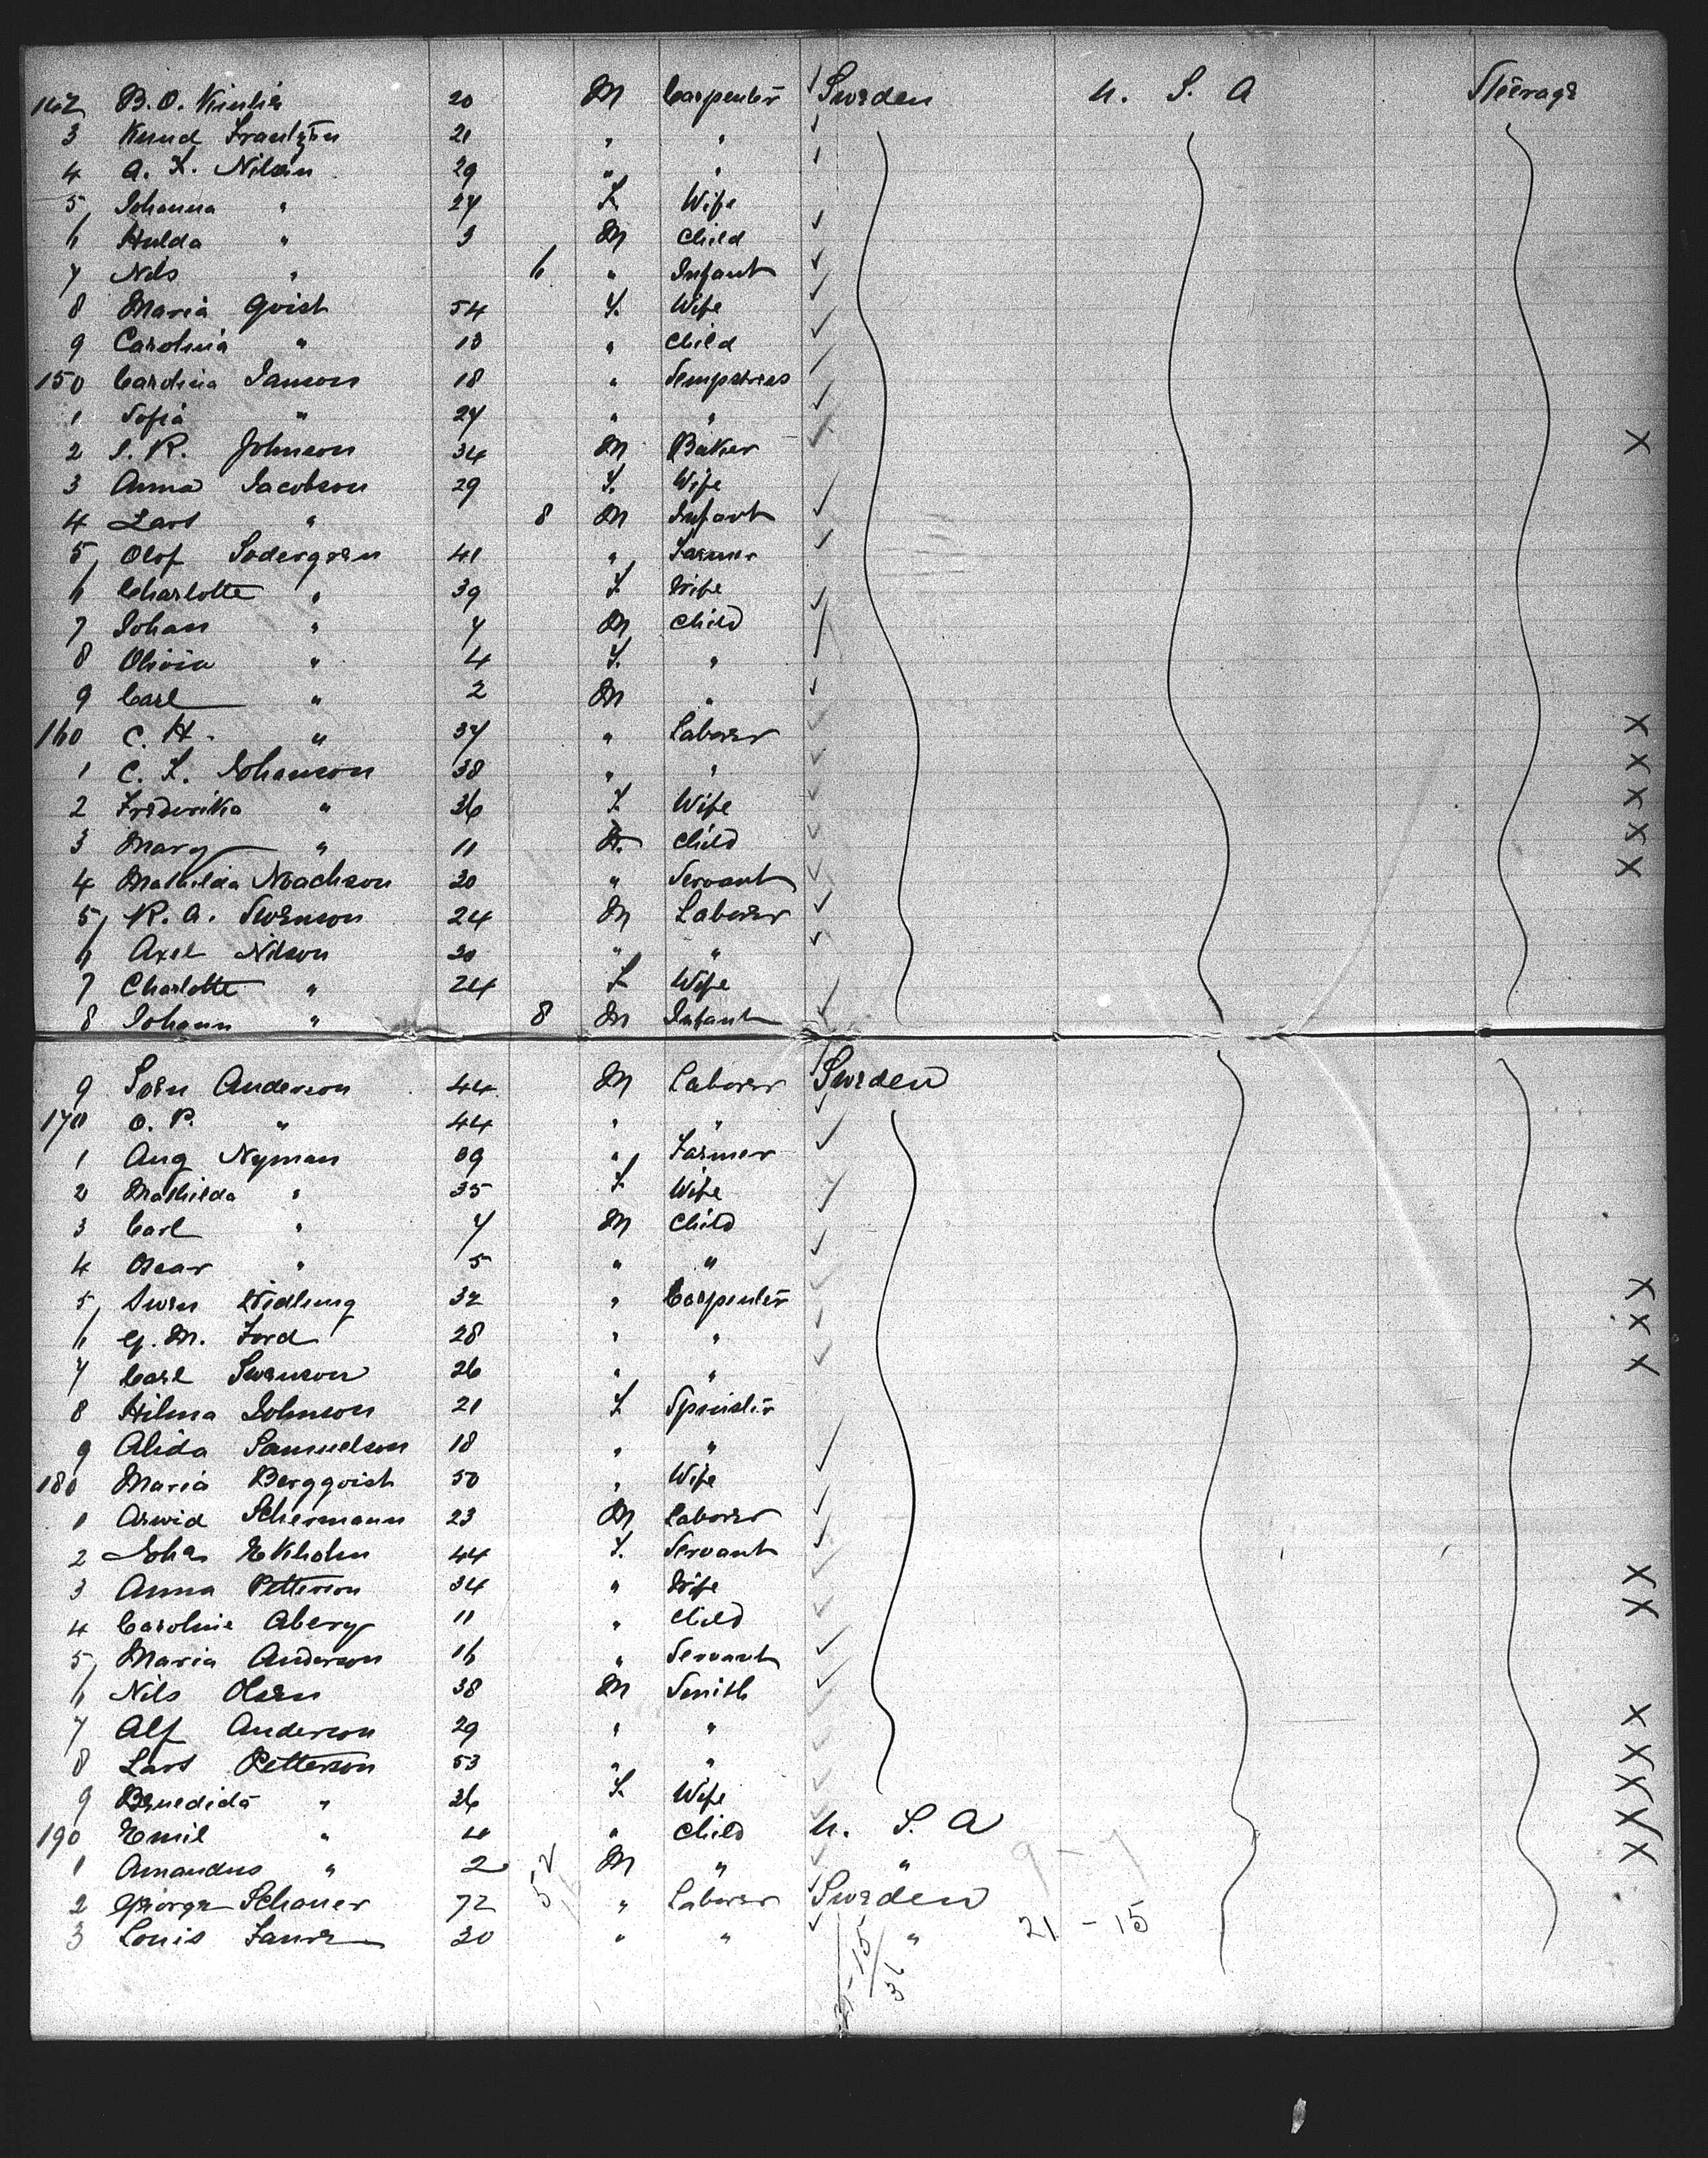 142 B. O. 20 M Carpenter Sweden U. S. A Steerage
3 Knud Frantzen 21 " "
4 A. F. Nilson 29 " "
5 Johanna " 27 F Wife
6 Hulda " 3 M Child
7 Nils " 6 " Infant
8 Maria Qvist 54 F. Wife
9 Carolina " 13 " Child
150 Carolina Janson 18 " Sempstress
1 Sofia " 27 " "
2 S. R. Johnson 34 M Baker X
3 Anna Jacobson 29 F. Wife
4 Lars " 8 M Infant
5 Olof Sodergren 41 " Farmer
6 Charlotte " 39 F Wife
7 Johan " 7 M Child
8 Olivia " 4 F. "
9 Carl " 2 M "
160 C. H. " 37 " Laborer X
1 C. F. Johanson 38 " " X
2 Frederika " 36 F Wife X
3 Mary " 11 F. Child X
4 Mathilda Noachson 20 " Servant X
5 K. A. Swenson 24 M Laborer
6 Axel Nilson 20 " "
7 Charlotte " 24 F Wife
8 Johann " 8 M Infant
9 Sven Anderson 44 M Laborer Sweden
170 O. P. " 44 " "
1 Aug Nyman 39 " Farmer
2 Mathilda " 35 F Wife
3 Carl " 7 M Child
4 Oscar " 5 " "
5 Swen Widlung 32 " Carpenter X
6 G. M. Ford 28 " " X
7 Carl Swenson 26 " " X
8 Hilma Johnson 21 F Spinster
9 Alida Samuelson 18 " "
180 Maria Bergqvist 50 " Wife
1 Arwid Schermann 23 M Laborer
2 Ekholm 44 F. Servant
3 Anna Petterson 34 " Wife X
4 Caroline Aberg 11 " Child X
5 Maria Anderson 16 " Servant
6 Nils Olsen 38 M Smith
7 Alf Anderson 29 " " X
8 Lars Petterson 53 " " X
9 Benedida " 36 F. Wife X
190 Emil " 4 " Child U. S. A X
1 Amandus " 2 M " " X
2 George Schauer 72 " Laborer Sweden
3 Louis 30 " " "
21 - 15
21-15
36